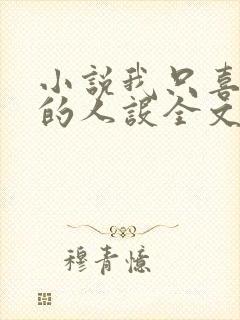 小説我只喜
的人設全文
穆青憶